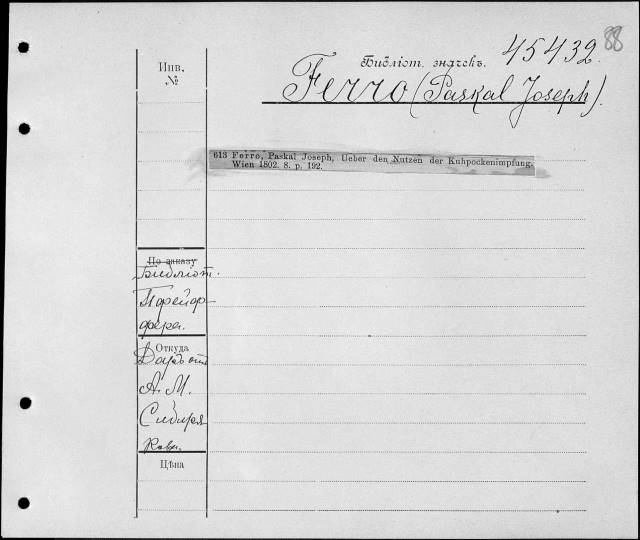 88
Инв.
№
Библіот. значекъ. 45432.
Ferro (Paskal Joseph).
613 Ferro, Paskal Joseph, Ueber den Nutzen der Kuhpockenimpfung.
Wien 1802. 8. p. 192.
По заказу
Библіот.
Пфейф-
фера.
Откуда
Даръ отъ
А. М.
Сибиря
кова.
Цѣна